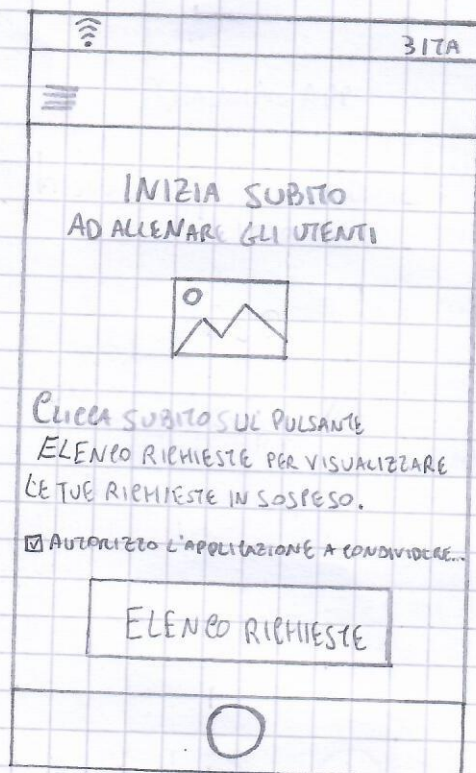 3ITA
INIZIA SUBITO
AD ALLENARE GLI UTENTI
CLICCA SUBITO SUL PULSANTE
ELENCO RICHIESTE PER VISUALIZZARE
LE TUE RICHIESTE IN SOSPESO.
AUTORIZZO L'APPLICAZIONE A CONDIVIDERE...
ELENCO RICHIESTE